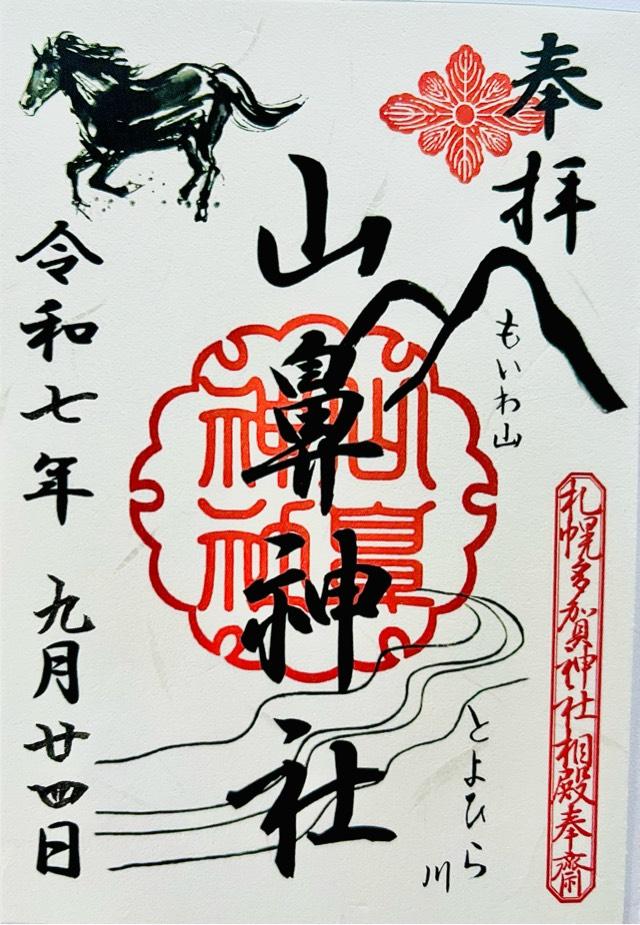 奉拝
もいわ山
札幌多賀神社相殿奉齋
山鼻神社
山鼻神社
とよひら川
令和七年 九月廿四日